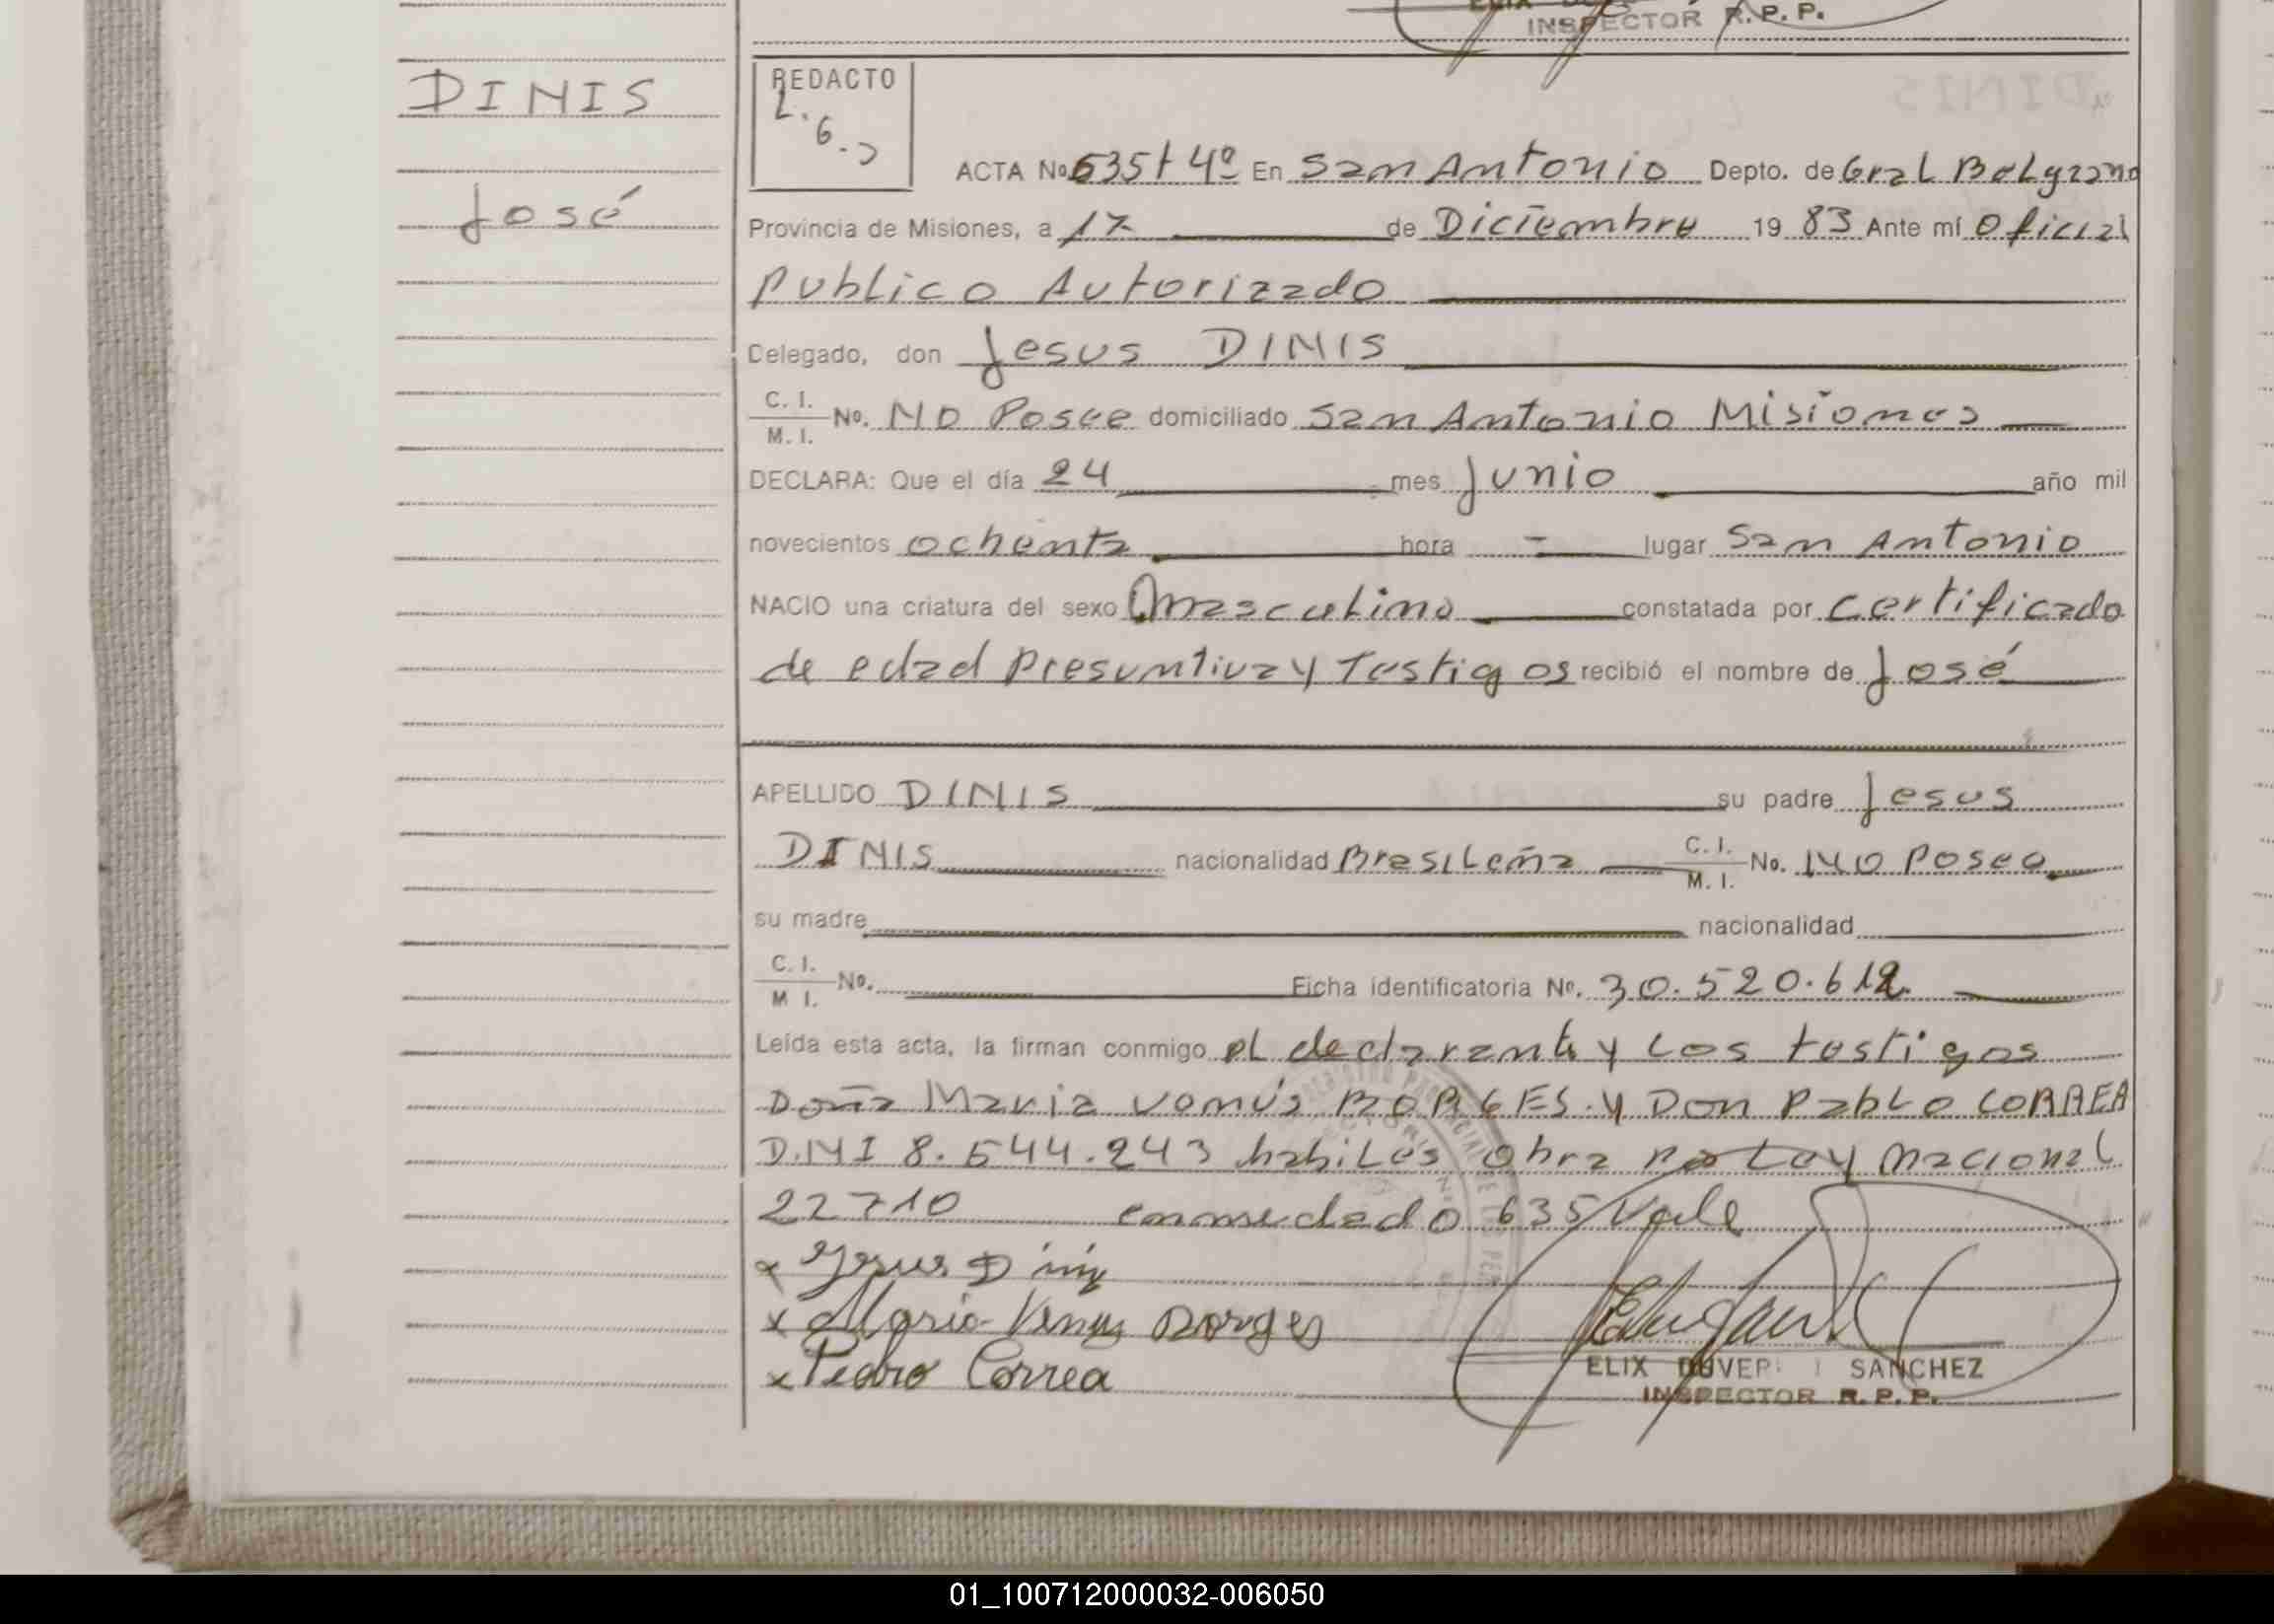 INSPECTOR R. P. P.
DINIS
José
REDACTO
L. G. J
ACTA No 635 t 4º En San Antonio Depto. de Gral Belgrano
Provincia de Misiones, a 17 de Diciembre 19 83 Ante mí Oficial
Publico Autorizado
Delegado, don Jesus DINIS
C. I. / M. I. No. No Posee domiciliado San Antonio Misiones
DECLARA: Que el día 24 mes Junio año mil
novecientos ochenta hora - lugar San Antonio
NACIO una criatura del sexo Masculino constatada por certificado
de edad Presuntiva y Testigos recibió el nombre de José
APELLIDO DINIS su padre Jesus
DINIS nacionalidad Brasileña C. I. / M. I. No. No Posee
su madre nacionalidad
C. I. / M I. No. Ficha identificatoria No. 30.520.612
Leída esta acta, la firman conmigo el declarante y Los testigos
Doña Maria Venús BORGES y Don Pablo CORREA
D.N.I 8.544.243 habiles Obra Ley Nacional
22710 enmedado 635 Vale
x Jesus Dinis
x Maria Venus Borges
x Pedro Correa
ELIX DUVER SANCHEZ
INSPECTOR R. P. P.
01_100712000032-006050